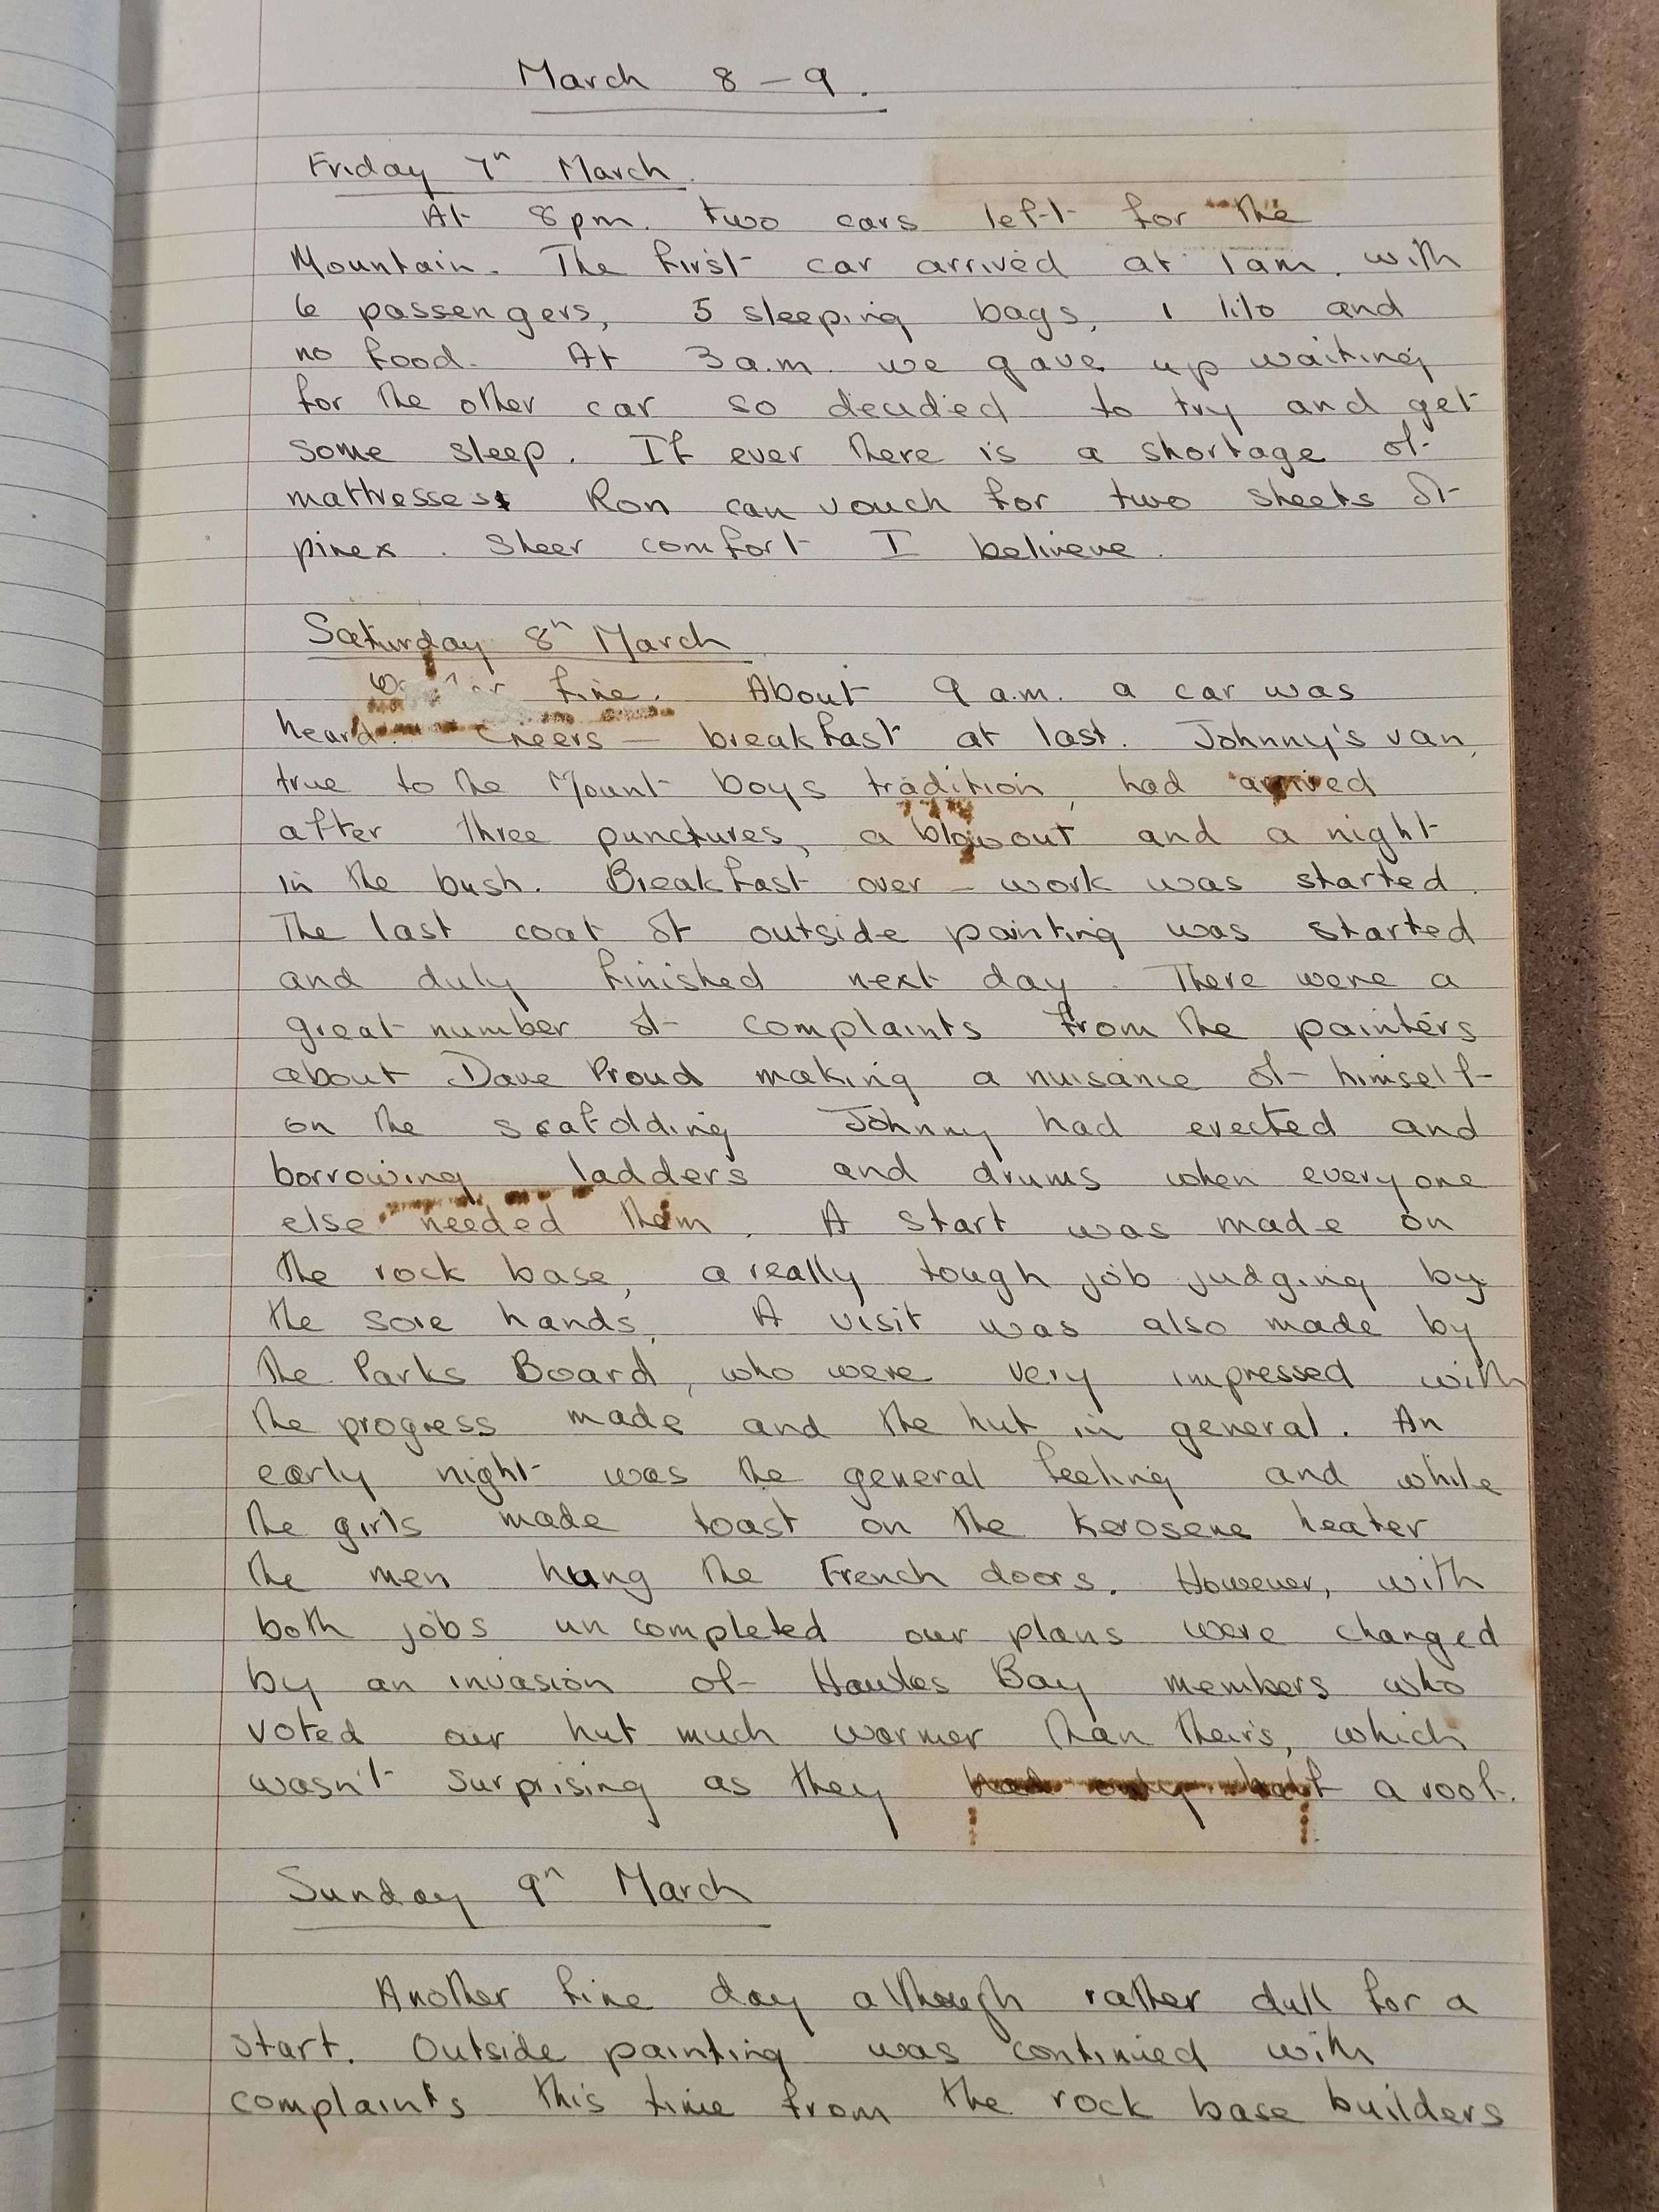 March 8 - 9.
Friday 7th March.
At 8pm. two cars left for the
Mountain. The first car arrived at 1am. with
6 passengers, 5 sleeping bags, 1 lilo and
no food. At 3 a.m. we gave up waiting
for the other car so decided to try and get
some sleep. If ever there is a shortage of
mattresses Ron can vouch for two sheets of
pinex. Sheer comfort I belineve.
Saturday 8th March
fine. About 9 a.m. a car was
heard. Cheers — breakfast at last. Johnny's van,
true to the Mount boys tradition, had arrived
after three punctures, a blowout and a night
in the bush. Breakfast over - work was started.
The last coat of outside painting was started
and duly finished next day. There were a
great number of complaints from the painters
about Dave Proud making a nuisance of himself
on the scafolding Johnny had erected and
borrowing ladders and drums when everyone
else needed them. A start was made on
the rock base, a really tough job judging by
the sore hands. A visit was also made by
the Parks Board, who were very impressed with
the progress made and the hut in general. An
early night was the general feeling and while
the girls made toast on the kerosene heater
the men hung the French doors. However, with
both jobs un completed our plans were changed
by an invasion of Hawkes Bay members who
voted our hut much warmer than theirs, which
wasn't surprising as they had only half a roof.
Sunday 9th March
Another fine day although rather dull for a
start. Outside painting was continued with
complaints this time from the rock base builders